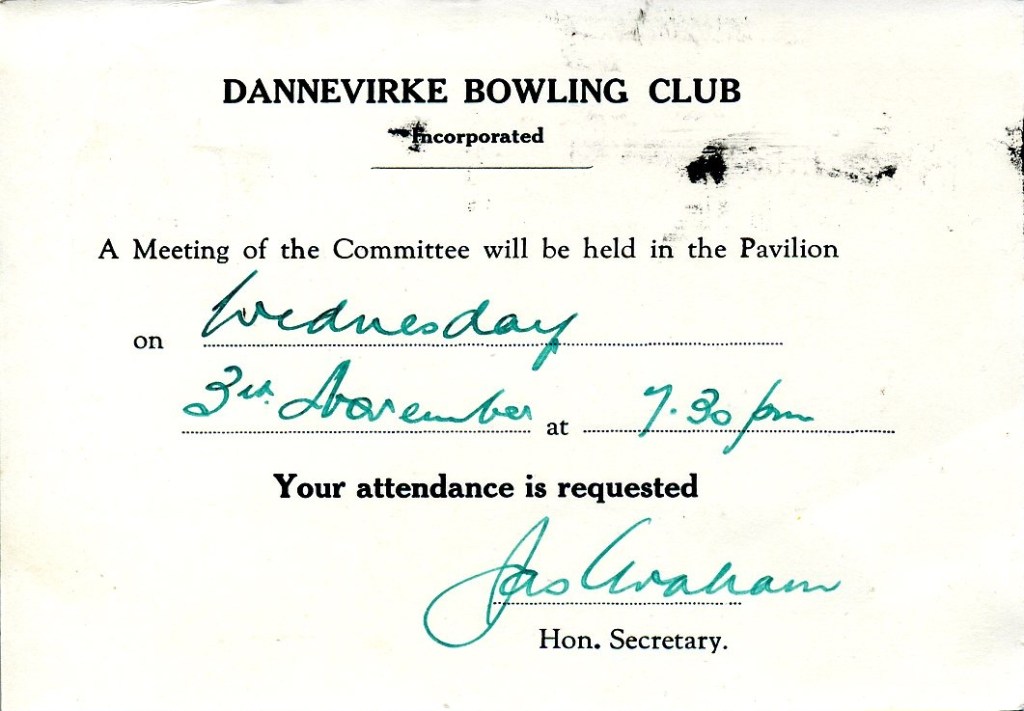 DANNEVIRKE BOWLING CLUB
Incorporated
A Meeting of the Committee will be held in the Pavilion
on Wednesday
3rd November at 7.30 pm
Your attendance is requested
Jas Graham
Hon. Secretary.